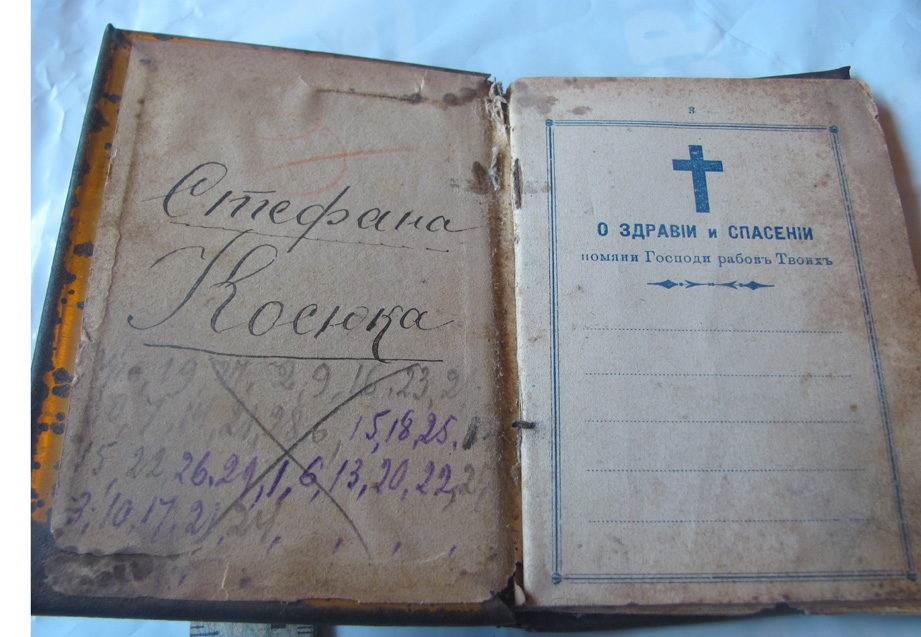 Стефана
Косюка
19, 27, 2, 9, 16, 23, 2
21, 28, 6, 15, 18, 25,
15, 22, 26, 29, 1, 6, 13, 20, 22,
3, 10, 17, 21, 24
3
О ЗДРАВІИ и СПАСЕНІИ
помяни Господи рабовъ Твоихъ